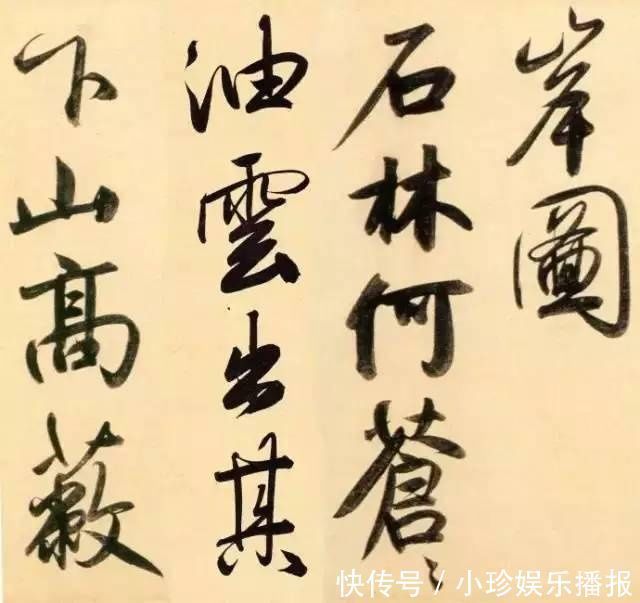 岸圖
石林何蒼〻
油雲出其
下山高蔽
快传号/小珍娱乐播报